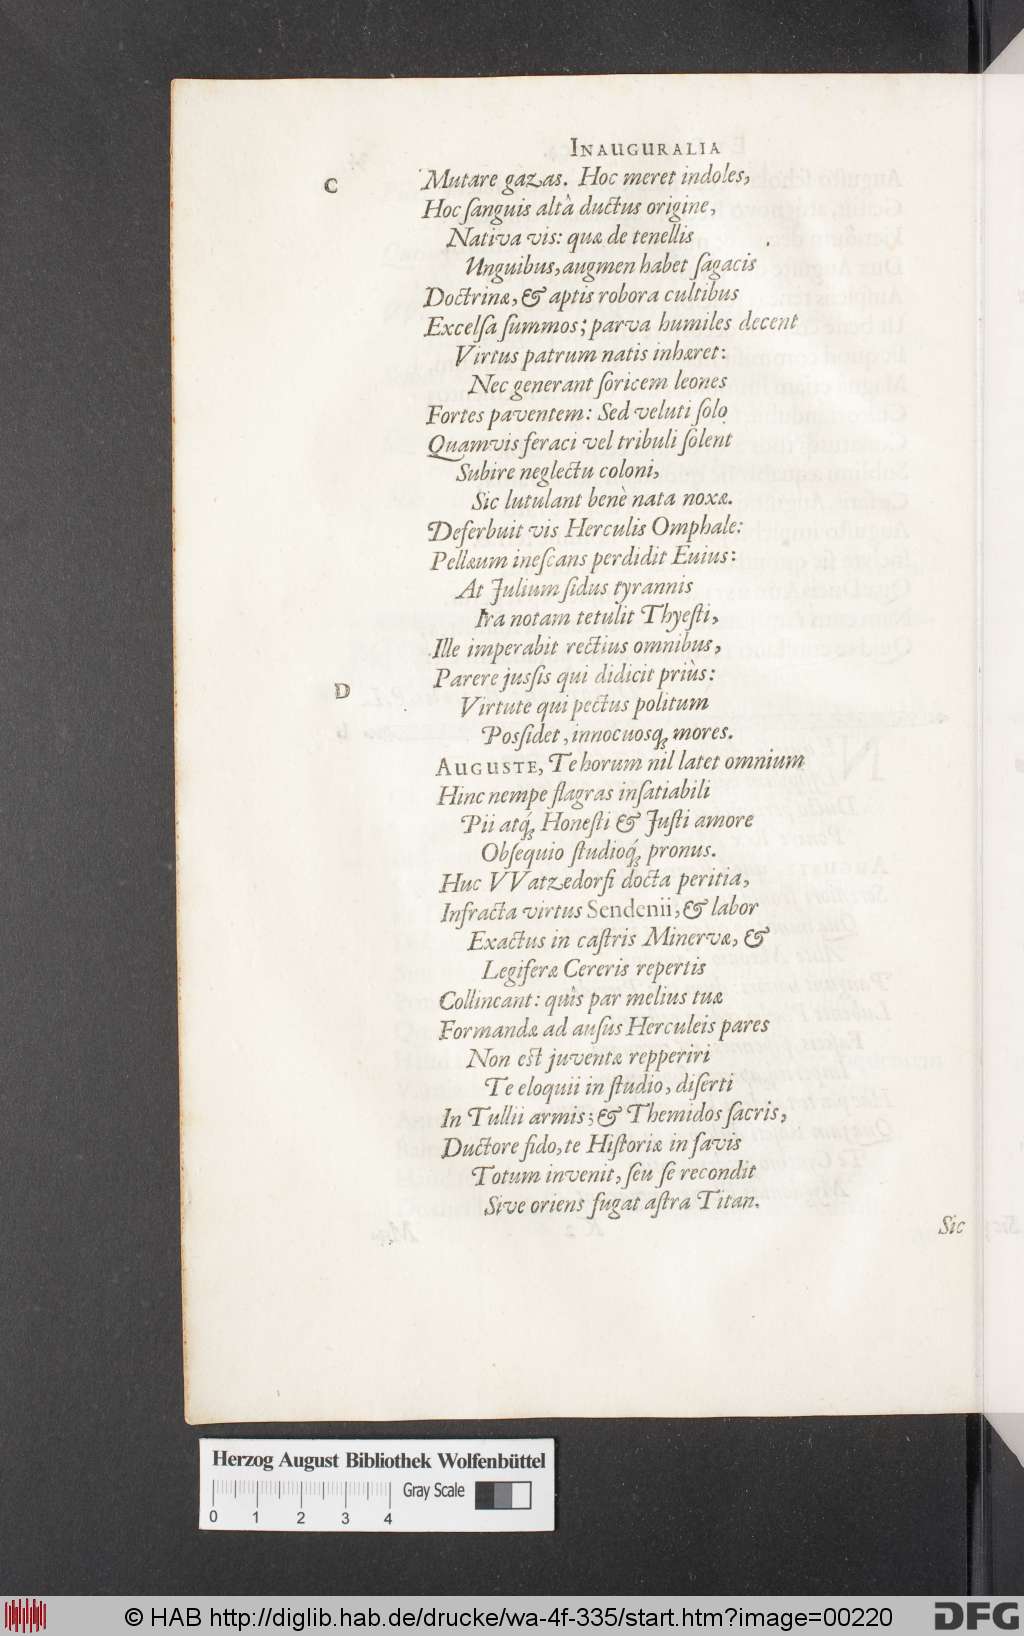 INAUGURALIA
C
Mutare gazas. Hoc meret indoles,
Hoc ſanguis altâ ductus origine,
Nativa vis: quæ de tenellis
Unguibus, augmen habet ſagacis
Doctrinæ, & aptis robora cultibus
Excelſa ſummos; parva humiles decent
Virtus patrum natis inhæret:
Nec generant ſoricem leones
Fortes paventem: Sed veluti ſolo
Quamvis feraci vel tribuli ſolent
Subire neglectu coloni,
Sic lutulant benè nata noxæ.
Deferbuit vis Herculis Omphale:
Pellæum ineſcans perdidit Euius:
At Julium ſidus tyrannis
Ira notam tetulit Thyeſti,
Ille imperabit rectius omnibus,
Parere juſſis qui didicit priùs:
D
Virtute qui pectus politum
Poſſidet, innocuosq́; mores.
AUGUSTE, Te horum nil latet omnium
Hinc nempe flagras inſatiabili
Pii atq́; Honeſti & Juſti amore
Obſequio ſtudioq́; pronus.
Huc VVatzedorfi docta peritia,
Infracta virtus Sendenii, & labor
Exactus in caſtris Minervæ, &
Legiferæ Cereris repertis
Collineant: quîs par melius tuæ
Formandæ ad auſus Herculeis pares
Non est juventæ repperiri
Te eloquii in ſtudio, diſerti
In Tullii armis; & Themidos ſacris,
Ductore fido, te Hiſtoriæ in favis
Totum invenit, ſeu ſe recondit
Sive oriens fugat aſtra Titan.
Sic
Herzog August Bibliothek Wolfenbüttel
Gray Scale
0 1 2 3 4
© HAB http://diglib.hab.de/drucke/wa-4f-335/start.htm?image=00220
DFG